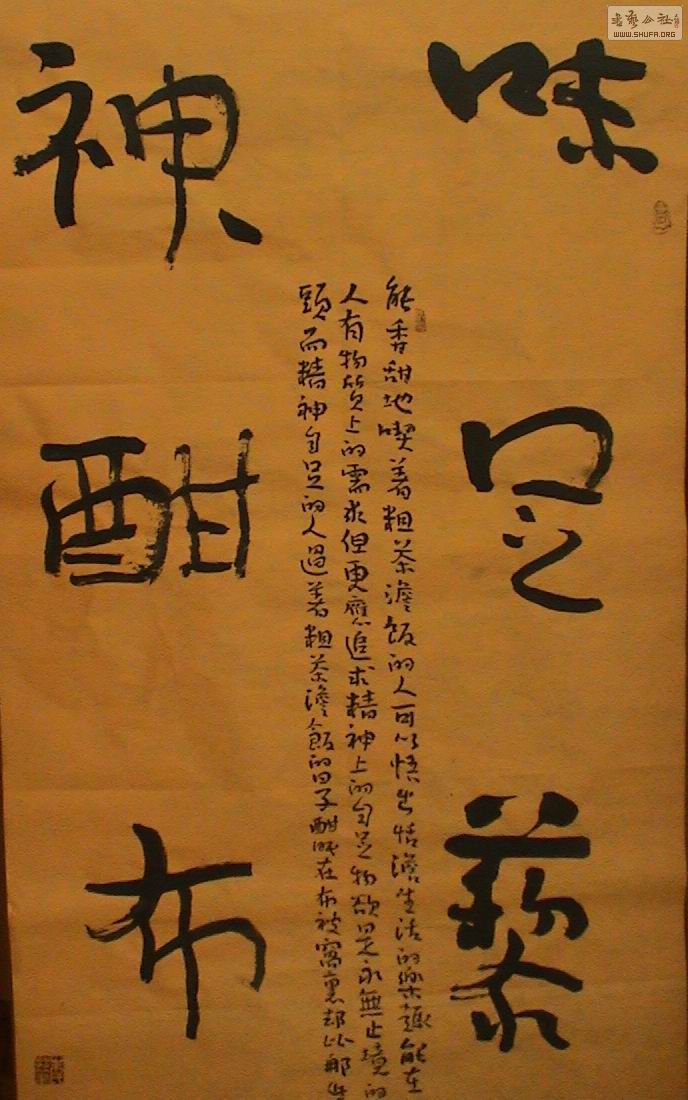 味足藜
神酣布
能香甜地喫着粗茶澹飯的人可以悟出恬澹生活的樂趣能在
人有物質上的需求但更應追求精神上的自足物欲是永無止境的
頭而精神自足的人過着粗茶澹飯的日子酣眠在布被窩裏却比那些
書藝公社
WWW.SHUFA.ORG